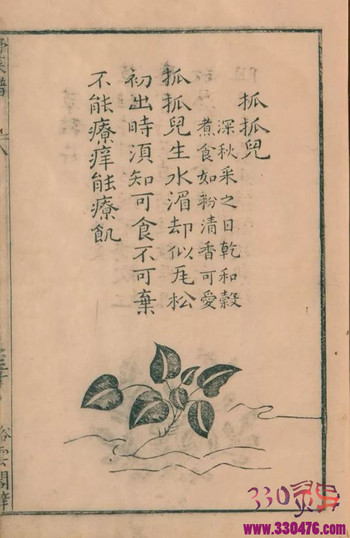 抓抓兒
深秋采之日乾和穀
煮食如粉清香可愛
抓抓兒生水湄却似瓦松
初出時須知可食不可棄
不能療痒能療飢
330
www.330476.com